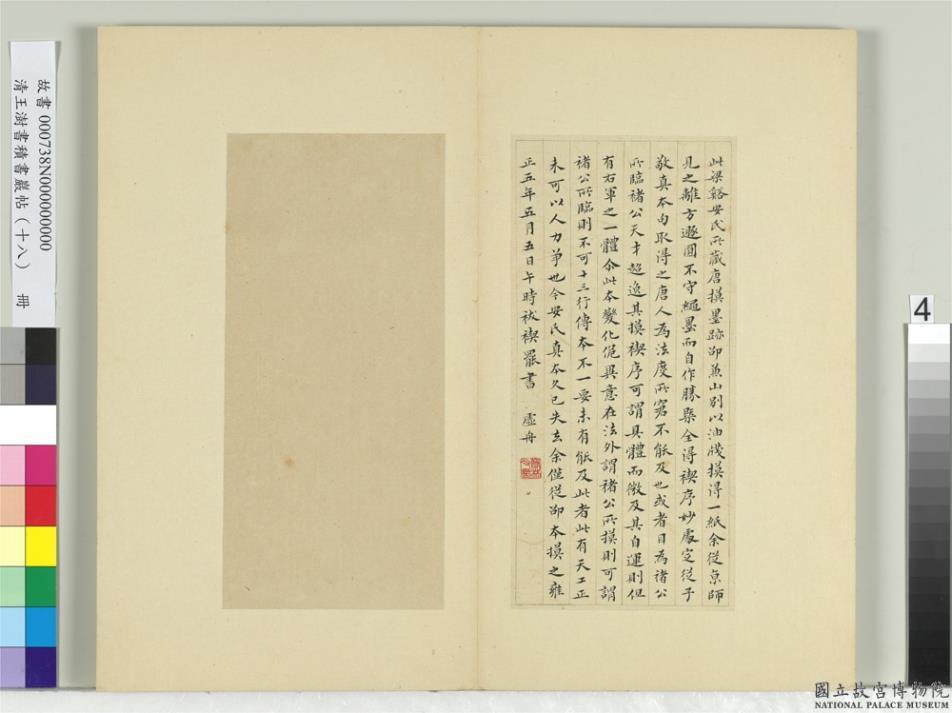 故書 000738N000000000
清王澍書積書巖帖(十八) 冊
此梁谿安氏所藏唐摸墨跡邵蕉山別以油牋摸得一紙余從京師
見之離方遯圓不守繩墨而自作勝槩全得禊序妙處定從子
敬真本向取得之唐人為法度所窘不能及也或者目為褚公
所臨褚公天才超逸其摸禊序可謂具體而微及其自運則但
有右軍之一體余此本變化俶異意在法外謂褚公所摸則可謂
褚公所臨則不可十三行傳本不一要未有能及此者此有天工正
未可以人力爭也今安氏真本久已失去余僅從邵本摸之雍
正五年五月五日午時祓禊罷書 虛舟
4
國立故宮博物院
NATIONAL PALACE MUSEUM